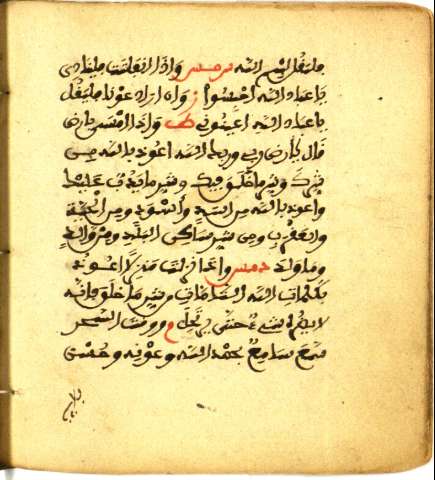 فليقل بسم الله مرمس واذا انفلتت فليناد
يا عباد الله احبسوا ز وان اراد عونا فليقل
يا عباد الله اعينوني ط واذا امسى بارض
قال يا ارض ربي وربك الله اعوذ بالله من
شرك وشر ما خلق فيك وشر ما يدب عليك
واعوذ بالله من اسد واسود ومن الحية
والعقرب ومن شر ساكن البلد ومن والد
وما ولد دمس واذا نزلت منزلا اعوذ
بكلمات الله التامات من شر ما خلق فانه
شيء حتى يرتحل م ووقت السحر
سمع سامع بحمد الله وعونه وحسن